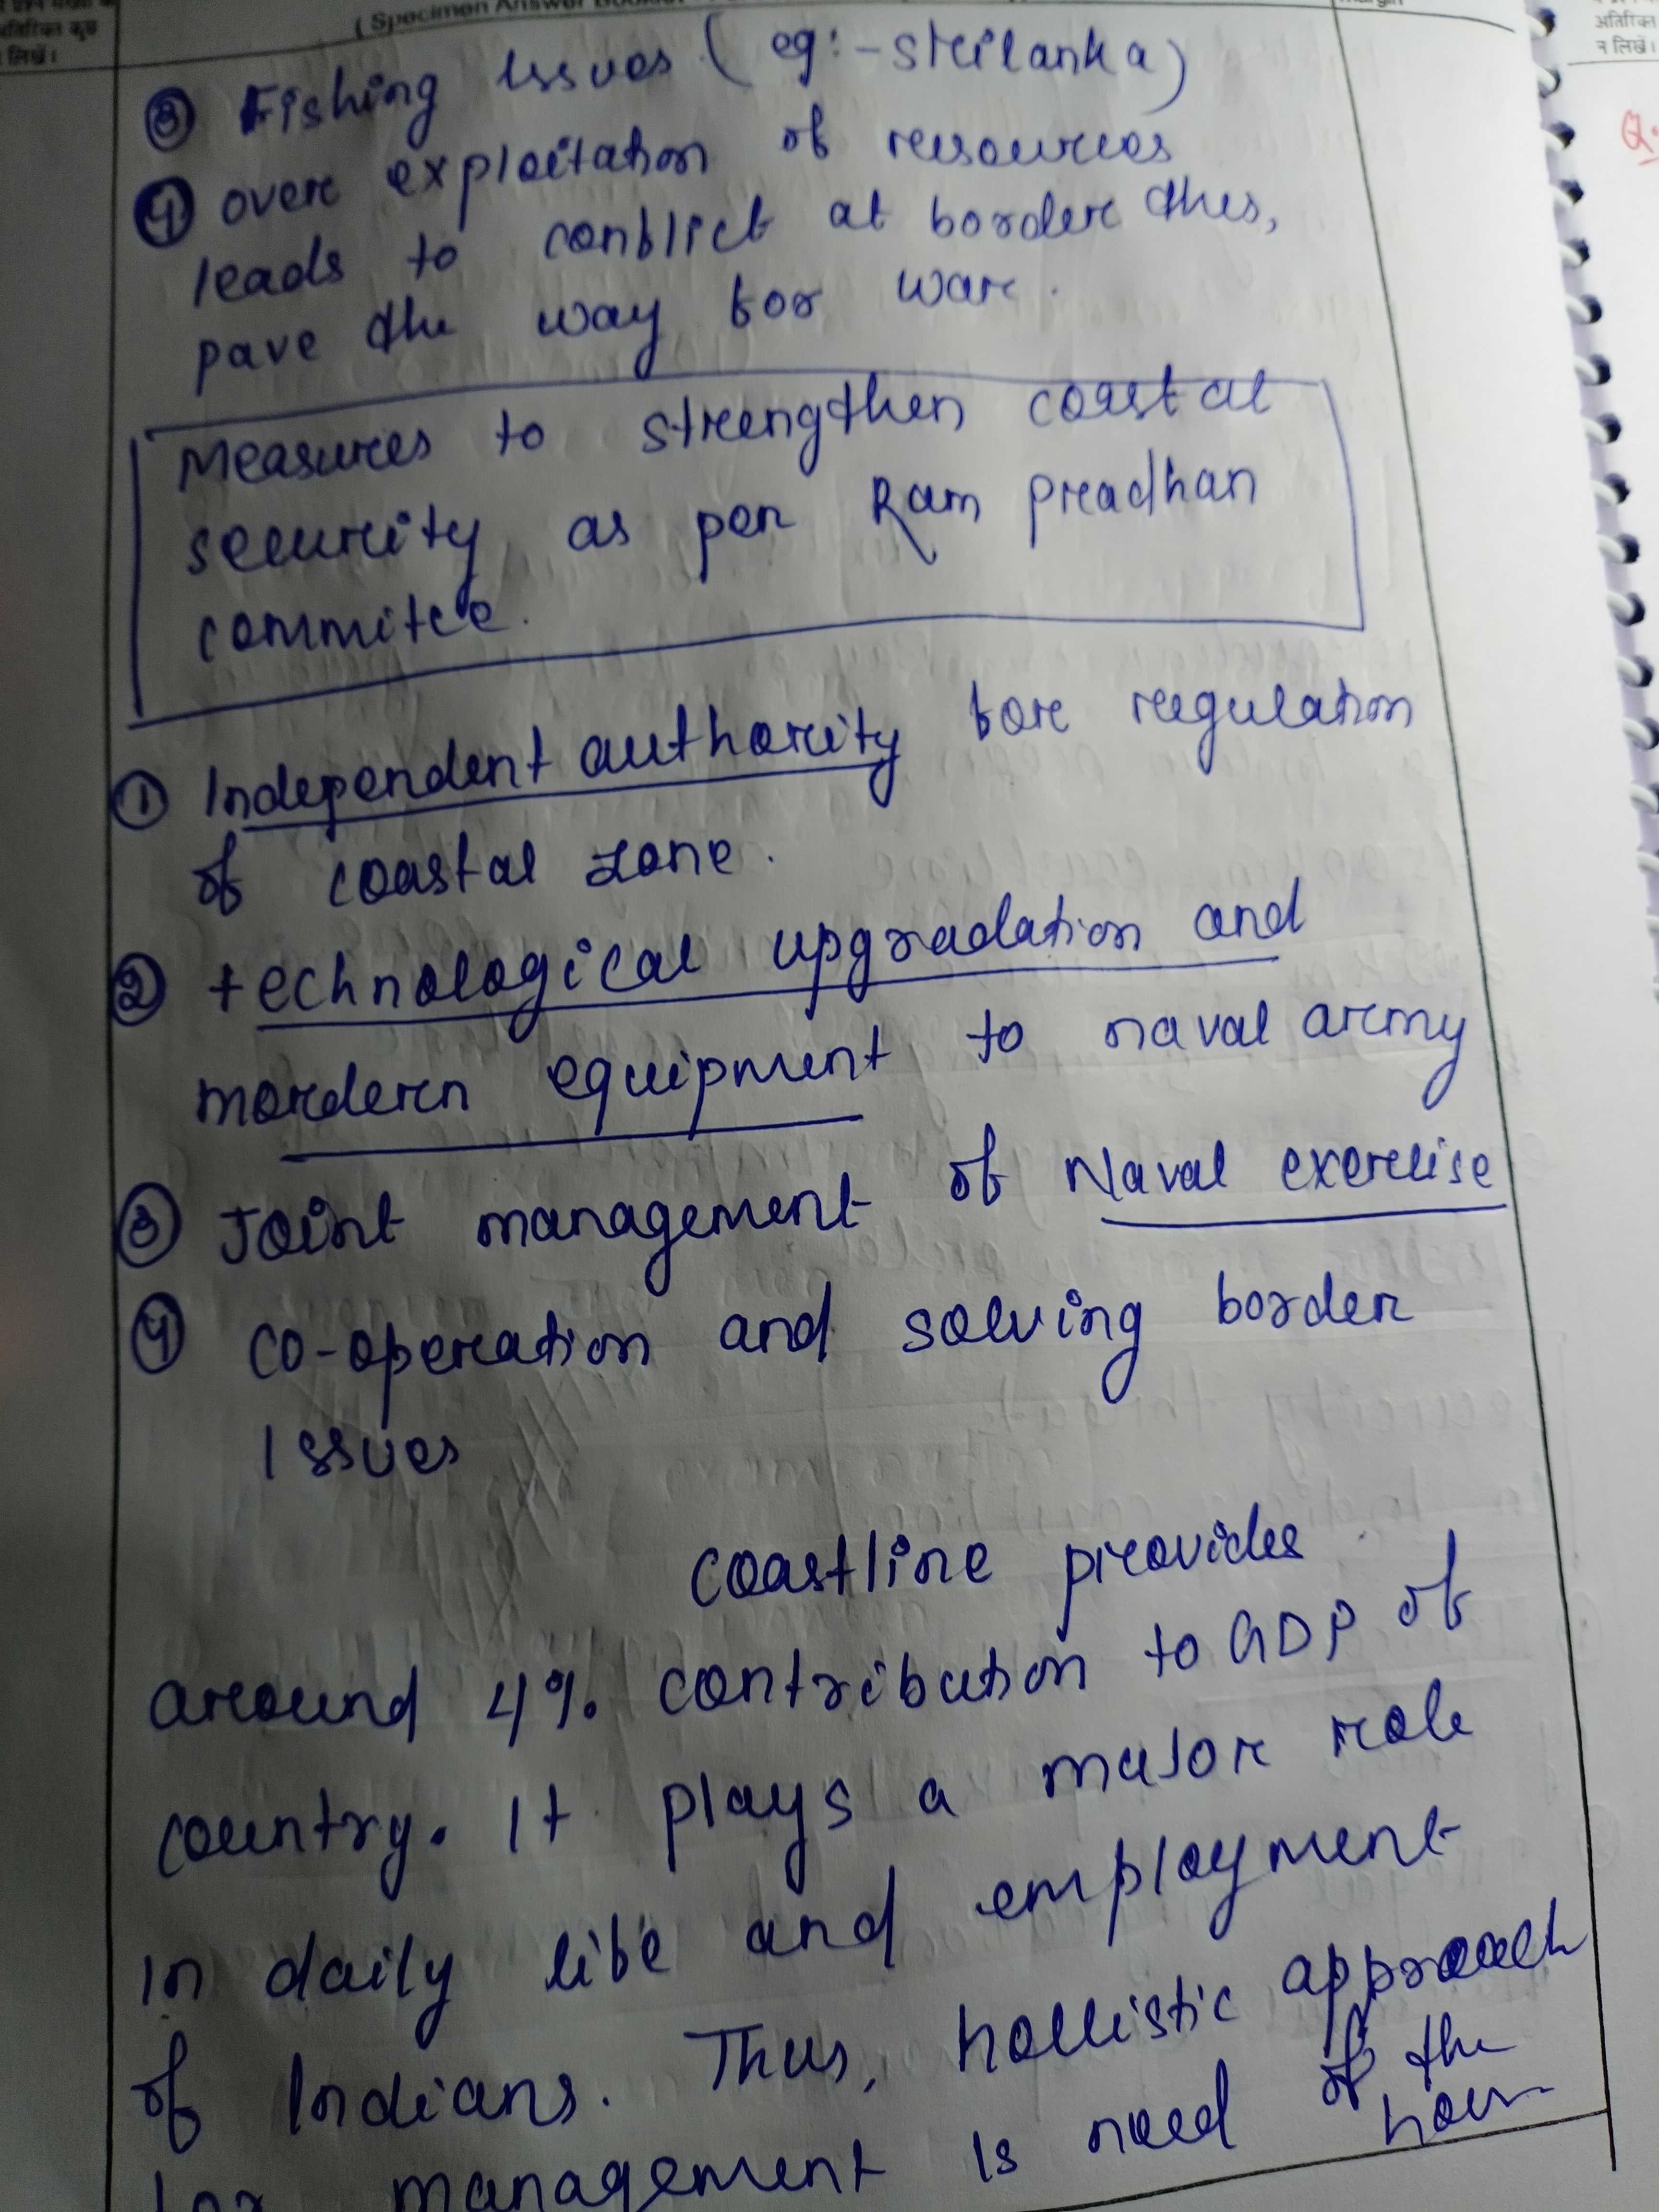 ( Specimen Answer Booklet
अतिरिक्त कुछ
लिखें।
अतिरिक्त
न लिखें।
③ Fishing issues (eg:- Srilanka)
④ over exploitation of resources
leads to conflict at border thus,
pave the way for war.
Measures to strengthen coastal
security as per Ram pradhan
commitee.
① Independent authority for regulation
of coastal zone.
② technological upgradation and
mordern equipment to naval army
③ Joint management of Naval exercise
④ co-operation and solving border
issues
coastline provides
around 4% contribution to GDP of
country. It plays a major role
in daily life and employment
of Indians. Thus, hollistic approach
for management is need of the
hour